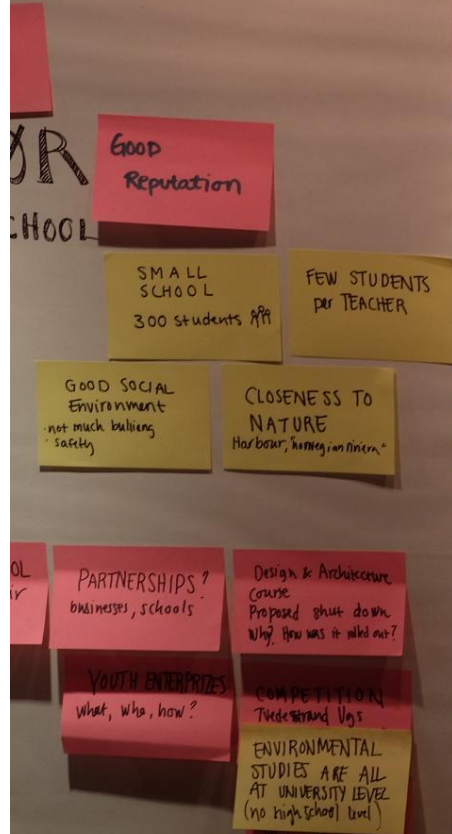 ØR
CHOOL
GOOD
Reputation
SMALL
SCHOOL
300 students
FEW STUDENTS
per TEACHER
GOOD SOCIAL
Environment
·not much bullieng
·safety
CLOSENESS TO
NATURE
Harbour, "norwegian riviera"
OL
ir
PARTNERSHIPS?
businesses, schools
Design & Architecture
Course
Proposed shut down
Why? How was it rolled out?
YOUTH ENTERPRIZES
what, who, how?
COMPETITION
Tvedestrand Vgs
ENVIRONMENTAL
STUDIES ARE ALL
AT UNIVERSITY LEVEL
(no high school level)